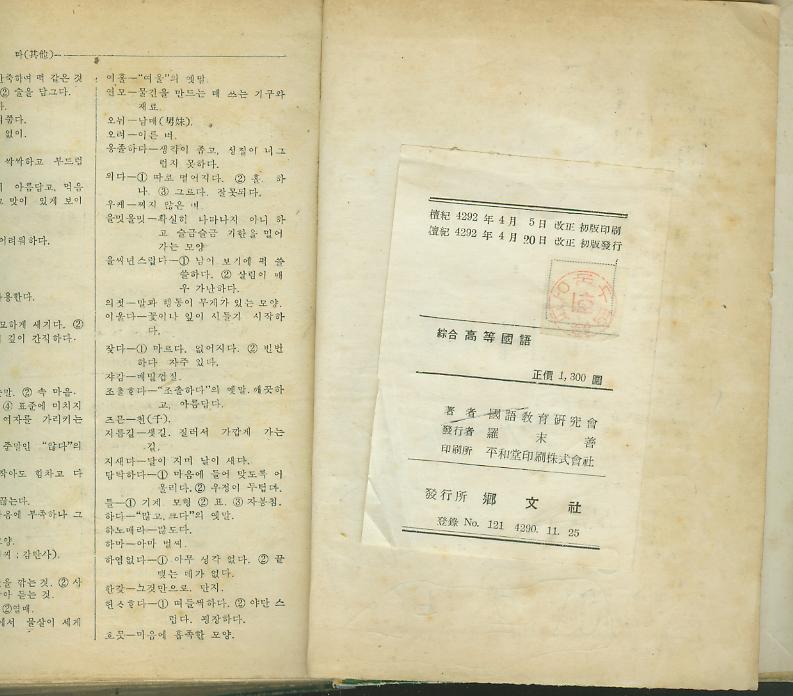 마(其他)
단축하여 떡 같은 것
② 술을 담그다.
없이.
싹싹하고 부드럽
아름답고, 먹음
고 맛이 있게 보이
어려워하다.
사용한다.
묘하게 새기다. ②
깊이 간직하다.
말. ② 속 마음.
④ 표준에 미치지
여자를 가리키는
준말인 "않다"의
작아도 힘차고 다
끓는다.
마음에 부족하나 그
; 감탄사).
을 깎는 것. ② 사
아 듣는 것.
②열매.
에서 물살이 세게
여흘—"여울"의 옛말.
연모—물건을 만드는 데 쓰는 기구와
재료.
오뉘—남매(男妹).
오려—이른 벼.
옹졸하다—생각이 좁고, 성질이 너그
럽지 못하다.
외다—① 따로 떨어지다. ② 홀. 하
나. ③ 그르다. 잘못되다.
우케—찌지 않은 벼.
을밋을밋—확실히 나타나지 아니 하
고 슬금슬금 기한을 밀어
가는 모양
을씨년스럽다—① 남이 보기에 퍽 쓸
쓸하다. ② 살림이 매
우 가난하다.
의젓—말과 행동이 무게가 있는 모양.
이울다—꽃이나 잎이 시들기 시작하
다.
잦다—① 마르다. 없어지다. ② 빈번
하다 자주 있다.
쟈감—메밀껍질.
조출하다—"조촐하다"의 옛말. 깨끗하
고, 아름답다.
즈믄—천(千).
지름길—샛길. 질러서 가깝게 가는
길.
지새다—달이 지며 날이 새다.
탐탁하다—① 마음에 들어 맞도록 어
울리다. ② 우정이 두텁다.
틀—① 기계 모형 ② 표. ③ 자봉침.
하다—"많고, 크다"의 옛말.
하노매라—많도다.
하마—아마 벌써.
하염없다—① 아무 생각 없다. ② 끝
맺는 데가 없다.
한갓—그것만으로. 단지.
① 떠들썩하다. ② 야단 스
럽다. 굉장하다.
흐뭇—마음에 흡족할 모양.
檀紀 4292 年 4 月 5 日 改正 初版印刷
檀紀 4292 年 4 月 20 日 改正 初版發行
綜合 高等國語
正價 1,300 圜
著者 國語敎育硏究會
發行者 羅末善
印刷所 平和堂印刷株式會社
發行所 鄕文社
登錄 No. 121 4290. 11. 25